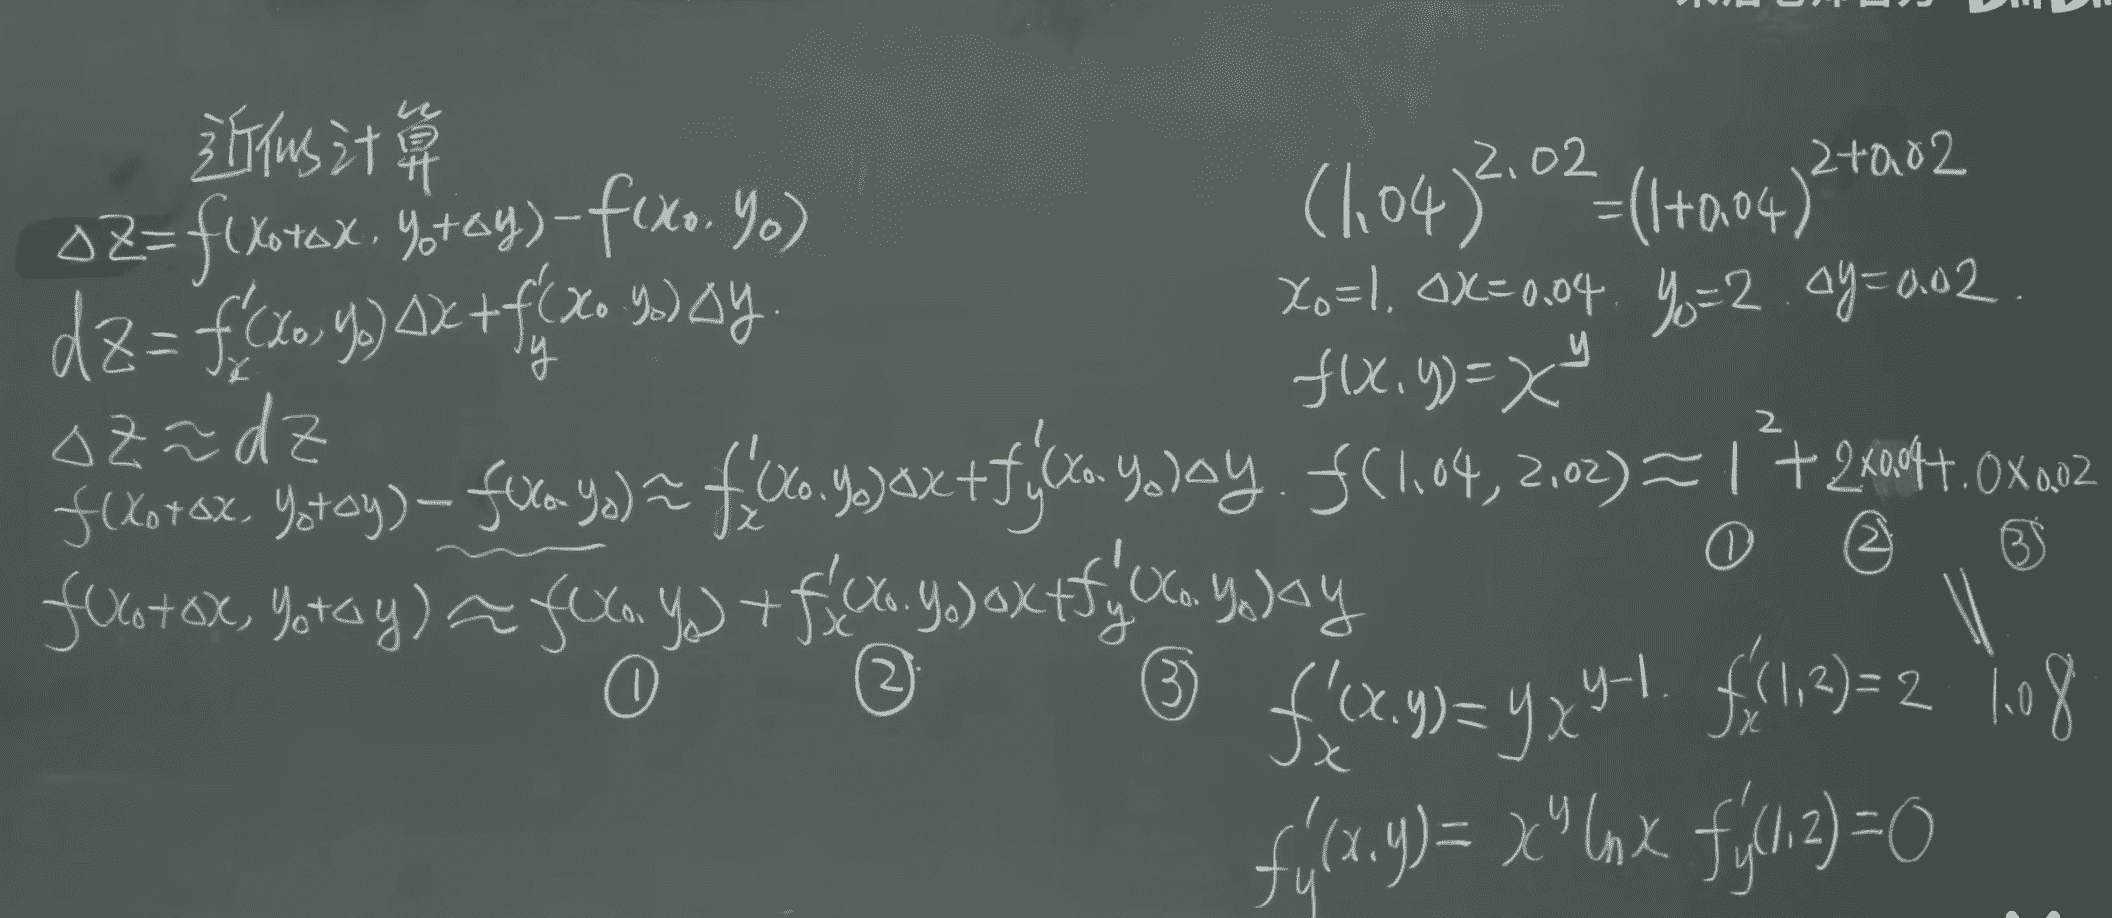 近似计算
Δz=f(x₀+Δx, y₀+Δy)-f(x₀, y₀)
dz=f'ₓ(x₀, y₀)Δx+f'_y(x₀, y₀)Δy.
Δz≈dz
f(x₀+Δx, y₀+Δy)-f(x₀, y₀)≈f'ₓ(x₀, y₀)Δx+f'_y(x₀, y₀)Δy.
f(x₀+Δx, y₀+Δy)≈f(x₀, y₀)+f'ₓ(x₀, y₀)Δx+f'_y(x₀, y₀)Δy
① ② ③
(1.04)^2.02=(1+0.04)^2+0.02
x₀=1, Δx=0.04, y₀=2. Δy=0.02.
f(x, y)=x^y
f(1.04, 2.02)≈1²+2×0.04+.0×0.02
① ② ③
1.08
f'ₓ(x, y)=yx^y-1. f'ₓ(1,2)=2
f'_y(x, y)=x^y lnx f'_y(1,2)=0